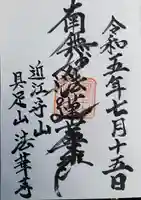 令和五年七月十五日
南無妙法蓮華経
近江子山
具足山 法華寺